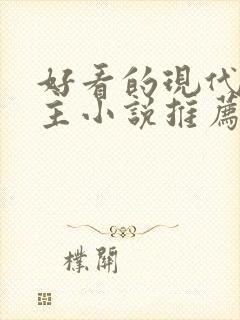 好看的現代
主小說推薦
樸開